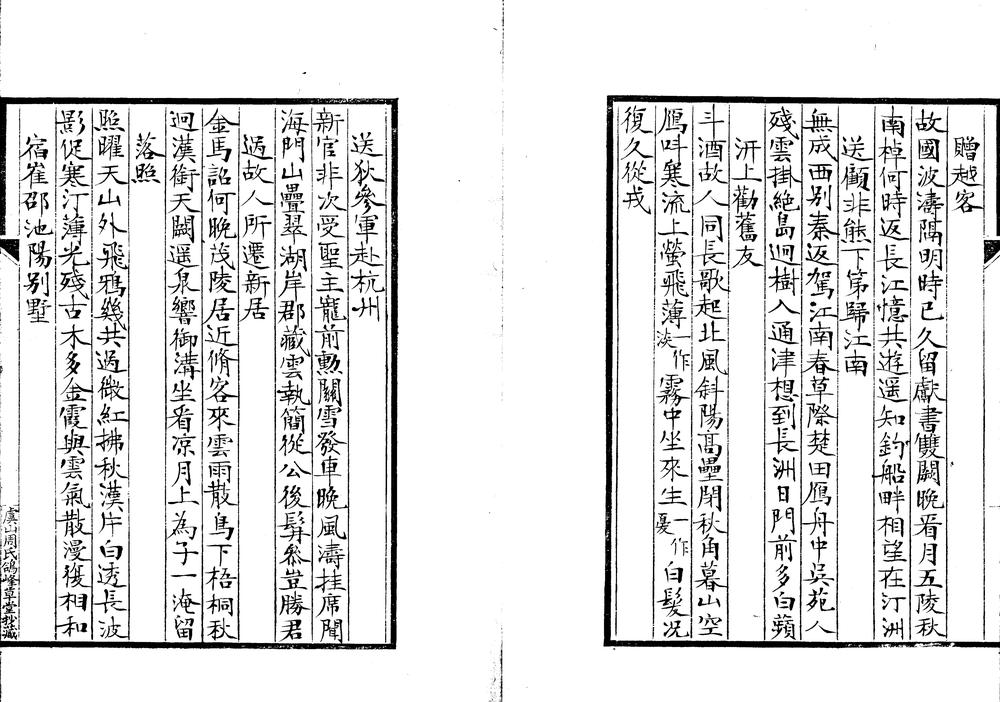 贈越客
故國波濤隔明時已久留獻書雙闕晚看月五陵秋
南棹何時返長江憶共遊遥知釣船畔相望在汀洲
送顧非熊下第歸江南
無成西别秦返駕江南春草際楚田鴈舟中吳苑人
殘雲掛絶島迥樹入通津想到長洲日門前多白蘋
汧上勸舊友
斗酒故人同長歌起北風斜陽高壘閉秋角暮山空
鴈呌寒流上螢飛薄一作淡霧中坐來生一作憂白髮况
復久從戎
送狄參軍赴杭州
新官非次受聖主寵前勲關雪發車晚風濤挂席聞
海門山疊翠湖岸郡藏雲執簡從公後髯參豈勝君
過故人所遷新居
金馬詔何晚茂陵居近脩客來雲雨散鳥下梧桐秋
迥漢衝天闕遥泉響御溝坐看凉月上為子一淹留
落照
照耀天山外飛鴉幾共過微紅拂秋漢片白透長波
影促寒汀薄光殘古木多金霞與雲氣散漫復相和
宿崔邵池陽别墅
虞山周氏鴿峰草堂抄藏